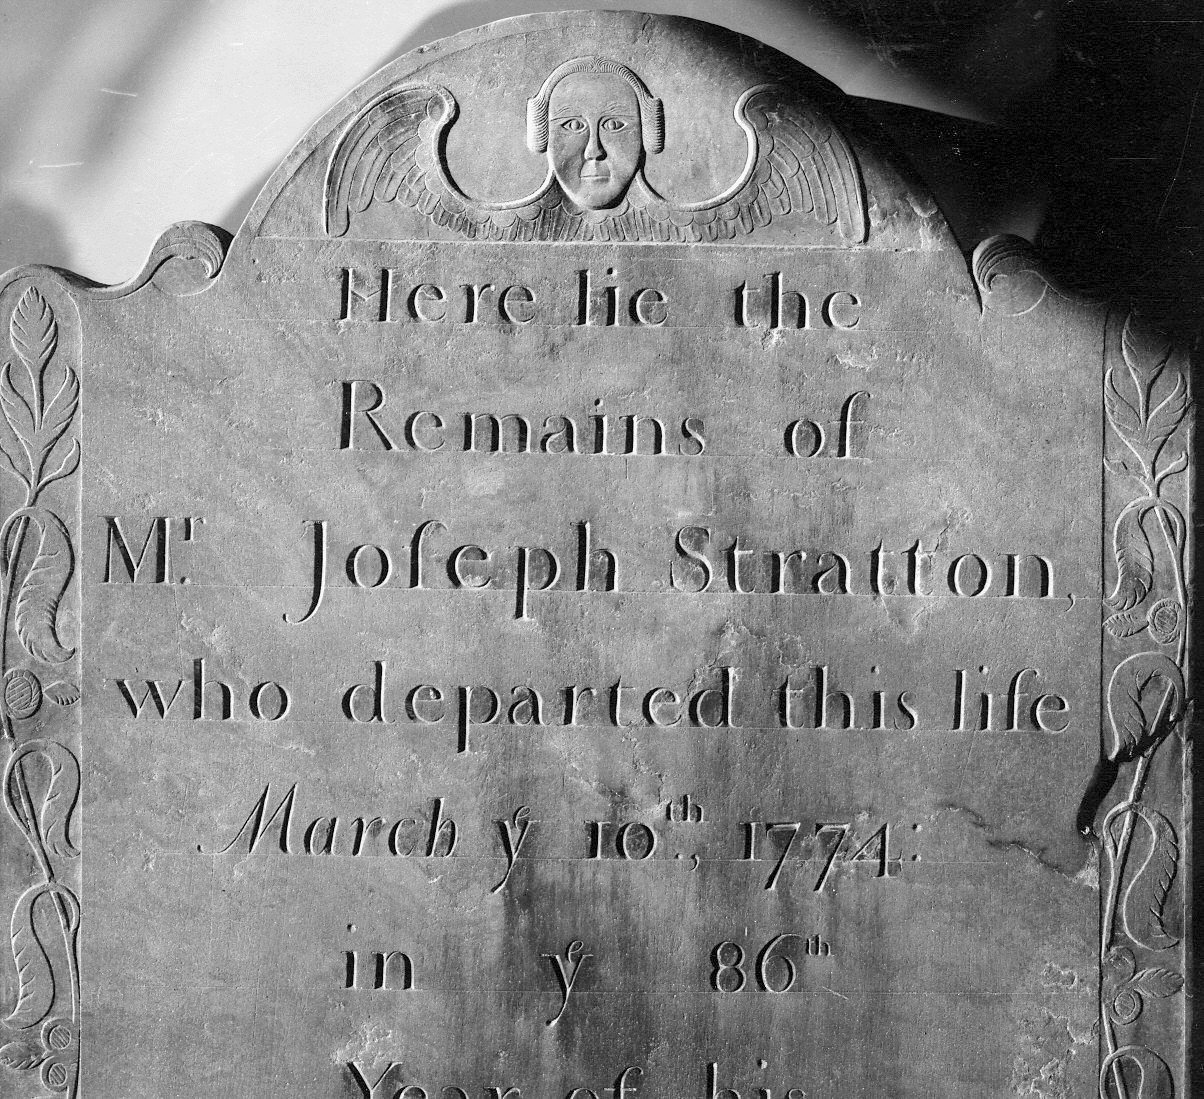 Here lie the
Remains of
Mr. Joſeph Stratton,
who departed this life
March ye 10th, 1774:
in ye 86th
Year of his